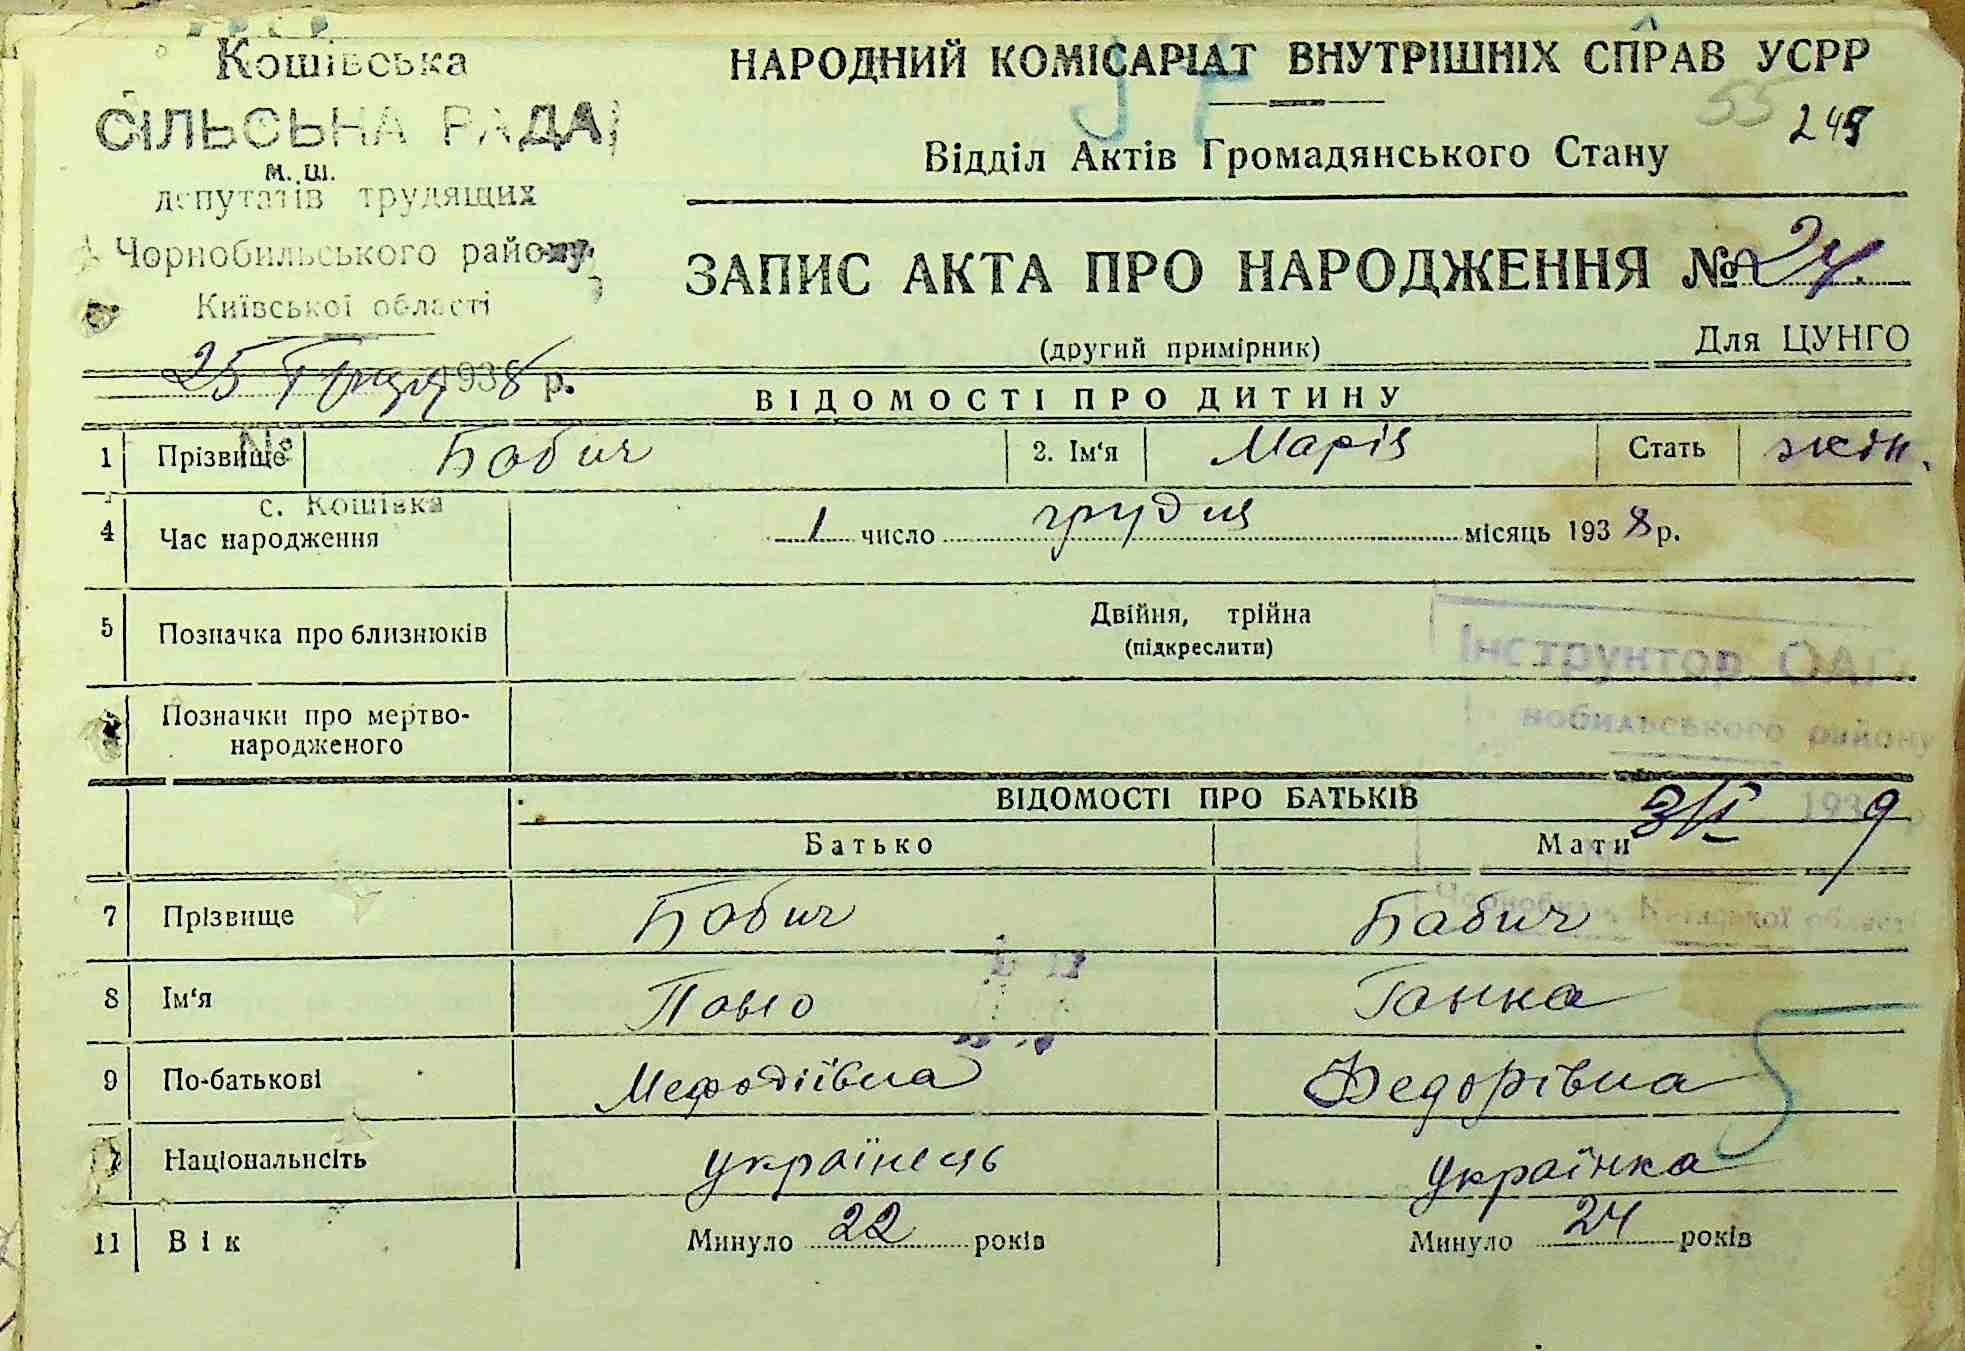 Кошівська
СІЛЬСЬКА РАДА
м. ш.
депутатів трудящих
Чорнобильського району
Київської області
25 Грудня 1938 р.
№
с. Кошівка
НАРОДНИЙ КОМІСАРІАТ ВНУТРІШНІХ СПРАВ УСРР
55
Відділ Актів Громадянського Стану
ЗАПИС АКТА ПРО НАРОДЖЕННЯ № 24.
(другий примірник) Для ЦУНГО
ВІДОМОСТІ ПРО ДИТИНУ
1 Прізвище Бабич 2. Ім'я Марія Стать жін.
4 Час народження 1 число грудня місяць 1938 р.
5 Позначка про близнюків Двійня, трійна
(підкреслити)
Інструктор ОАГС
нобильського району
Позначки про мертво-
народженого
3/VI 1939 р
Чорнобиль Київської області
ВІДОМОСТІ ПРО БАТЬКІВ
Батько Мати
7 Прізвище Бабич Бабич
8 Ім'я Павло Ганна
9 По-батькові Мефодіївна Федорівна
Національнсіть українець українка
11 Вік Минуло 22 років Минуло 24 років